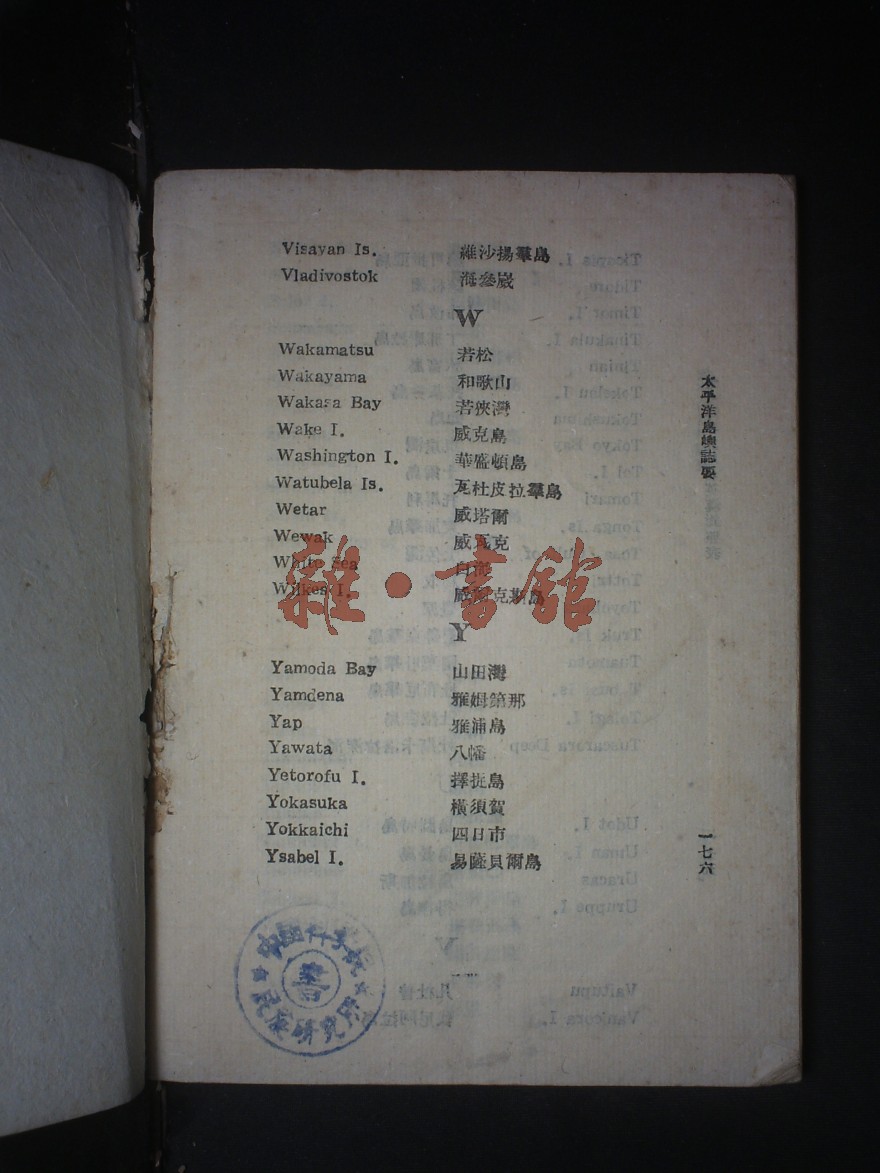 Visayan Is. 維沙揚羣島
Vladivostok 海參崴
W
Wakamatsu 若松
Wakayama 和歌山
Wakasa Bay 若狹灣
Wake I. 威克島
Washington I. 華盛頓島
Watubela Is. 瓦杜皮拉羣島
Wetar 威塔爾
Wewak 威瓦克
White Sea 白海
Wilkes I. 威爾克斯島
Y
Yamoda Bay 山田灣
Yamdena 雅姆第那
Yap 雅浦島
Yawata 八幡
Yetorofu I. 擇捉島
Yokasuka 橫須賀
Yokkaichi 四日市
Ysabel I. 易薩貝爾島
太平洋島嶼誌要
一七六
雜·書館
中國科學院
民族研究所
書